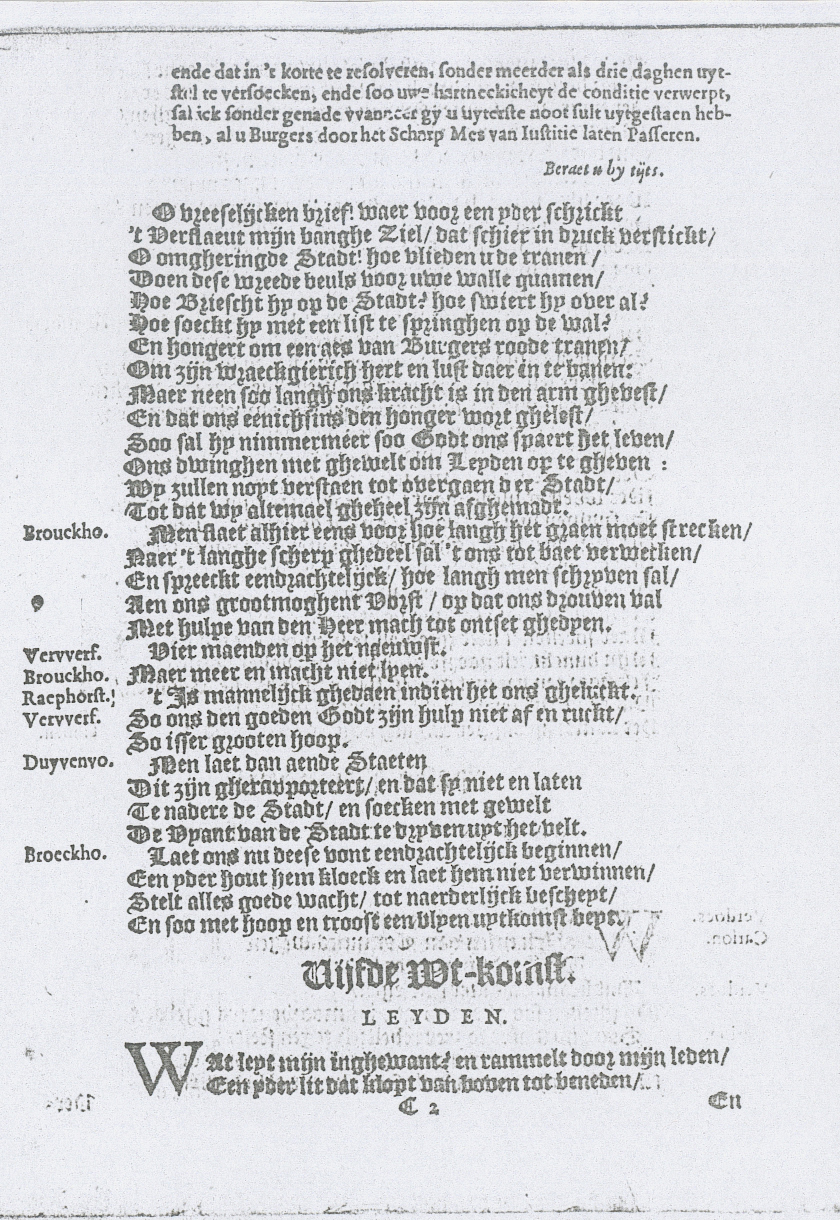 ende dat in 't korte te resolveren, sonder meerder als drie daghen uyt-
stel te versoecken, ende soo uwe hartneckicheyt de conditie verwerpt,
sal ick sonder genade vvanneer gy u uyterste noot sult uytgestaen heb-
ben, al u Burgers door het Scharp Mes van Iustitie laten Passeren.
Beraet u by tijts.
O vreeselijcken brief! waer voor een yder schrickt
't Verslaeut mijn banghe Ziel/ dat schier in druck verstickt/
O omgheringde Stadt! hoe vlieden u de tranen /
Doen dese wreede beuls voor uwe walle quamen/
Hoe Briescht hy op de Stadt? hoe swiert hy over al?
Hoe soeckt hy met een list te springhen op de wal?
En hongert om een aes van Burgers roode tranen/
Om zijn wraeckgierich hert en lust daer in te banen:
Maer neen soo langh ons kracht is in den arm ghevest/
En dat ons eenichsins den honger wort ghelest/
Soo sal hy nimmermeer soo Godt ons spaert het leven/
Ons dwinghen met ghewelt om Leyden op te gheven :
Wy zullen noyt verstaen tot overgaen der Stadt/
Tot dat wy altemael gheheel zijn afghemadt.
Brouckho. Men slaet alhier eens voor hoe langh het graen moet strecken/
Naer 't langhe scherp ghedeel sal 't ons tot baet verwecken/
En spreeckt eendrachtelijck/ hoe langh men schryven sal/
Aen ons grootmoghent Vorst / op dat ons drouven val
Met hulpe van den Heer mach tot ontset ghedyen.
Vervverf. Vier maenden op het naeuwst.
Brouckho. Maer meer en macht niet lyen.
Raephorst. 't Is mannelijck ghedaen indien het ons gheluckt.
Vervverf. So ons den goeden Godt zijn hulp niet af en ruckt/
So isser grooten hoop.
Duyvenvo. Men laet dan aende Staeten
Dit zijn gherapporteert/ en dat sy niet en laten
Te nadere de Stadt/ en soecken met gewelt
De Vyant van de Stadt te dryven uyt het velt.
Broeckho. Laet ons nu deese vont eendrachtelijck beginnen/
Een yder hout hem kloeck en laet hem niet verwinnen/
Stelt alles goede wacht/ tot naerderlijck bescheyt/
En soo met hoop en troost een blyen uytkomst beyt.
Vijfde Wt-komst.
LEYDEN.
WAt leyt mijn inghewant? en rammelt door mijn leden/
Een yder lit dat klopt van boven tot beneden/
C 2 En